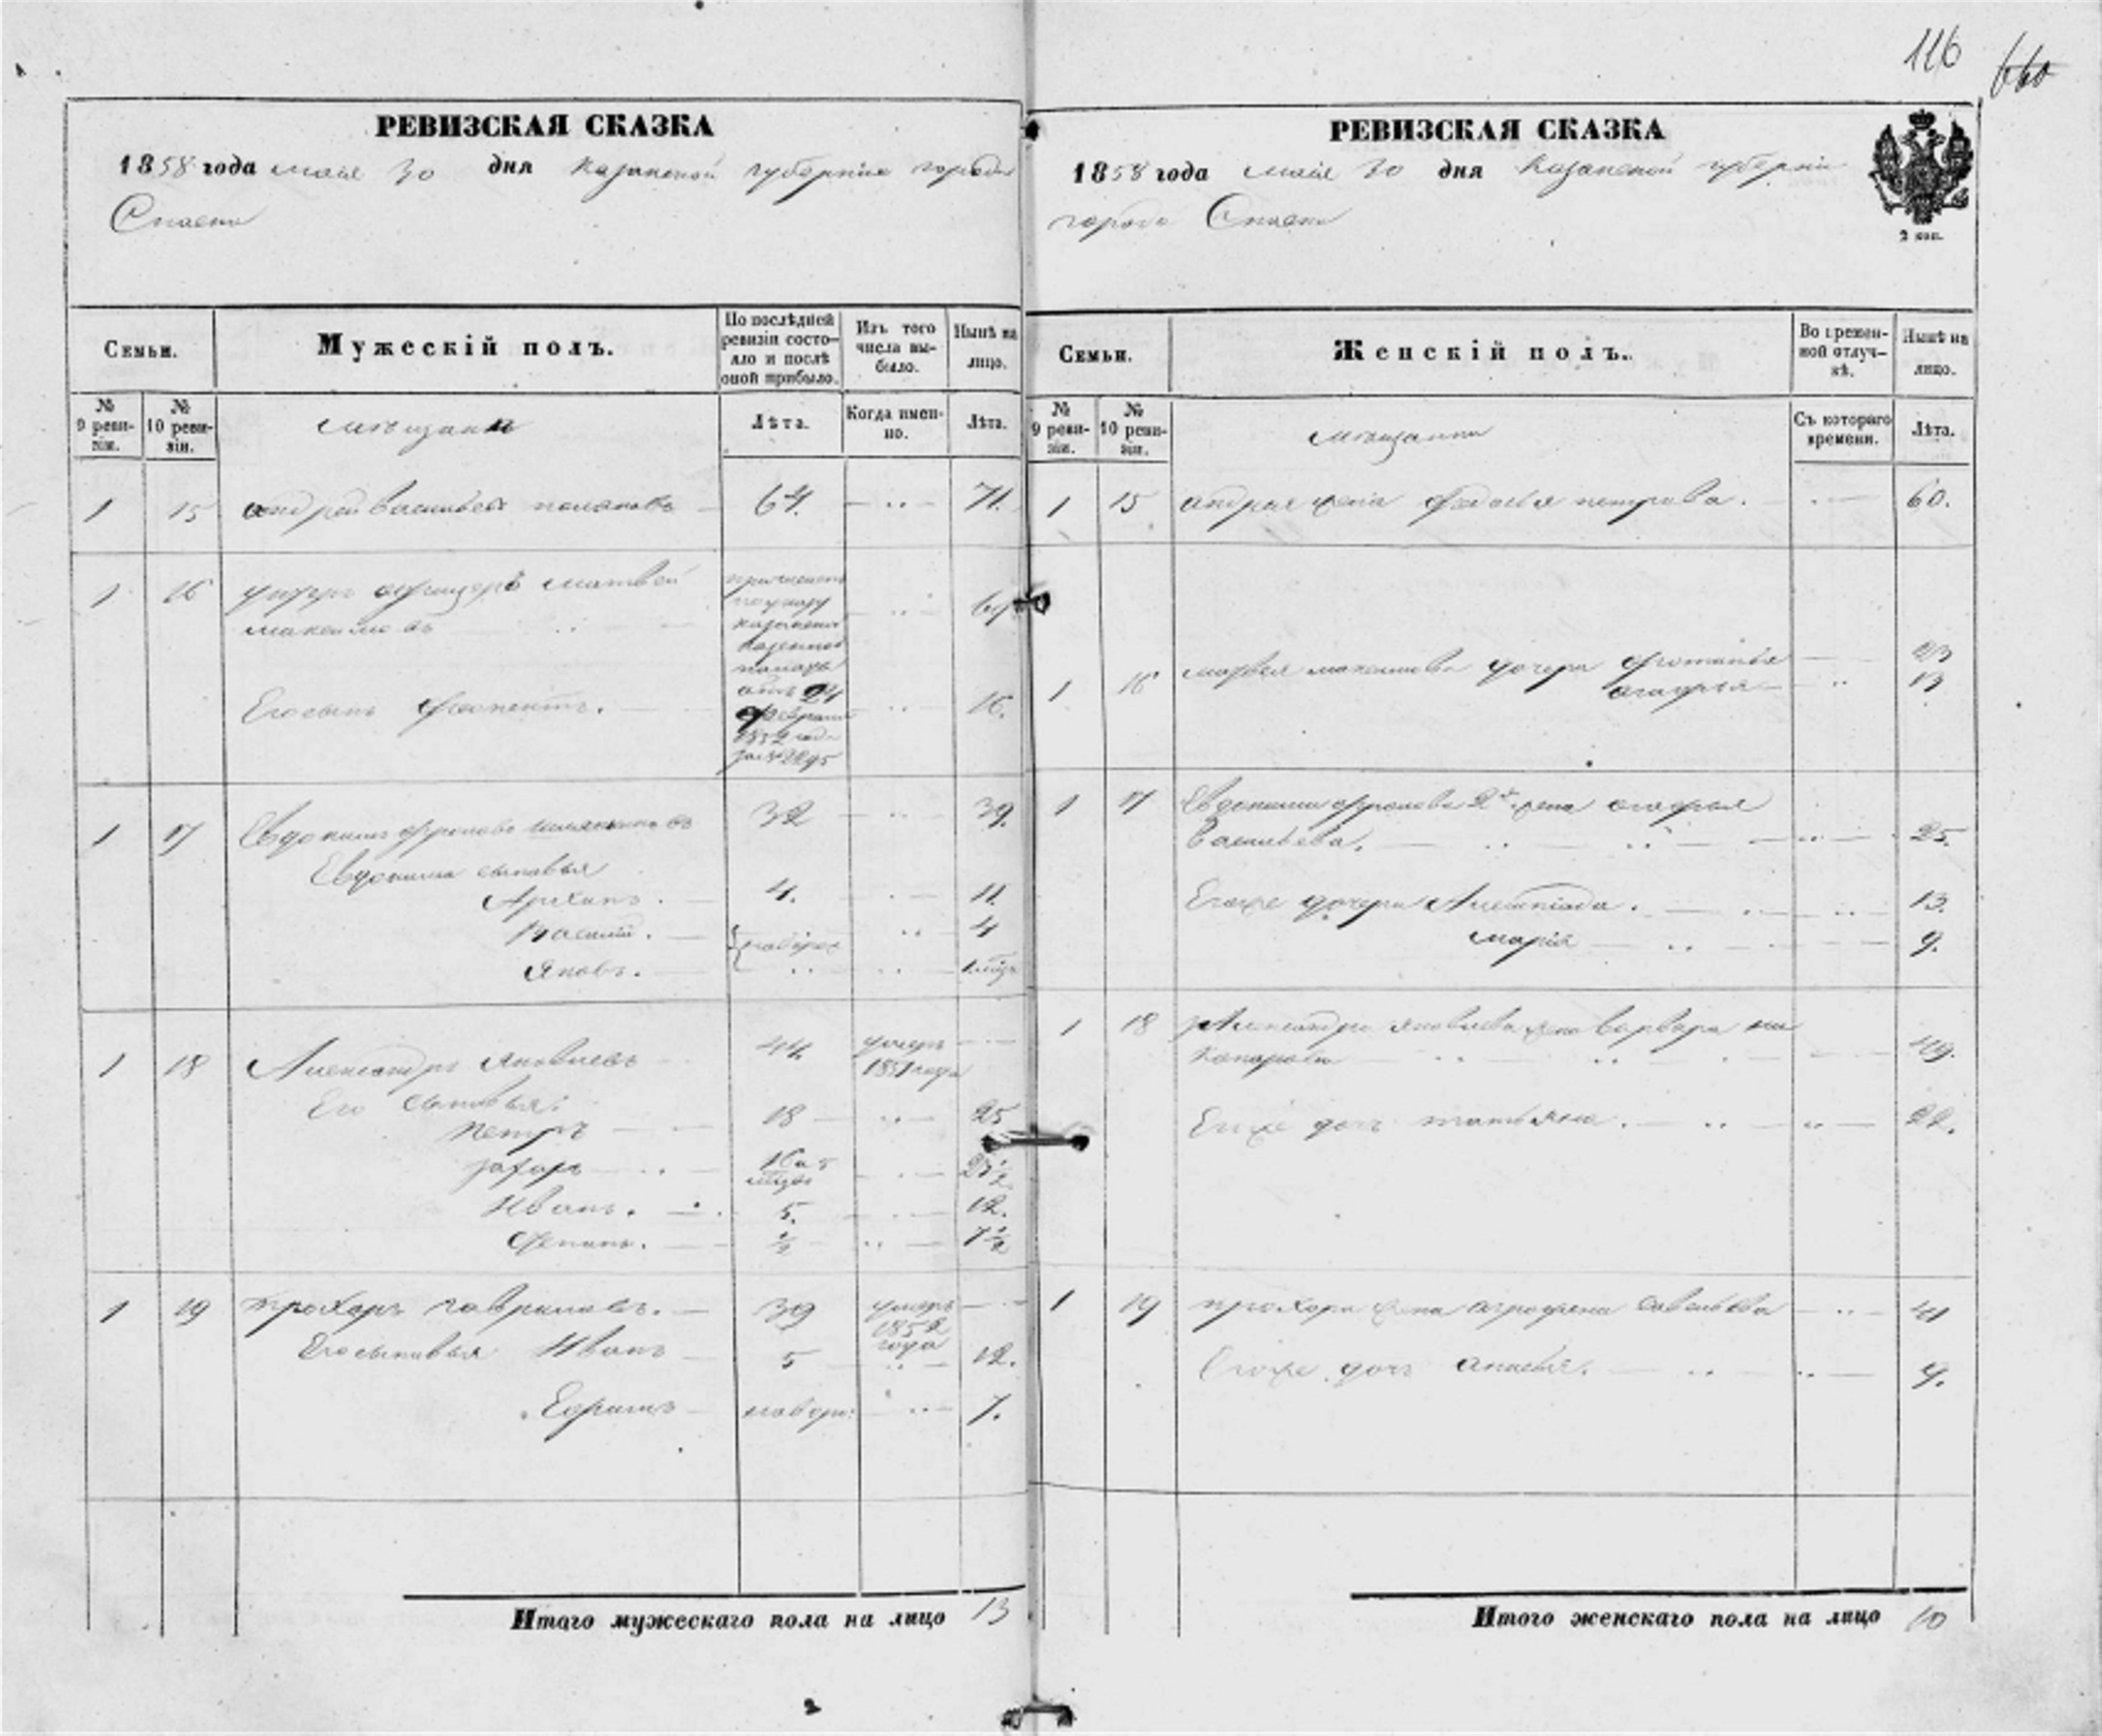 116
660
РЕВИЗСКАЯ СКАЗКА
1858 года мая 30 дня Казанской губернии города
Спаска
Семьи.
Мужескій полъ.
По послѣдней ревизіи состояло и послѣ оной прибыло.
Изъ того числа выбыло.
Нынѣ на лицо.
№ 9 ревизіи.
№ 10 ревизіи.
мещане
Лѣта.
Когда именно.
Лѣта.
1 15 Андрей Васильевъ 64. 71.
1 16 унтеръ офицеръ Матвей
Максимовъ
причисленъ
по указу
казанской
казенной
палаты
отъ 24
февраля
1852 года
за № 2295
69
Его сынъ 16.
1 17 Евдокимъ Фроловъ 32 39.
Евдокима сыновья
Архипъ. 4. 11.
Василій. 4
Яковъ.
1 18 Александръ Яковлевъ 44. умеръ
1851 года
Его сыновья:
Петръ 18 25
Захаръ
Иванъ. 5. 12.
½ 7½
1 19 Прохоръ Гавриловъ. 39 умеръ
1852
года
Его сыновья Иванъ 5 12.
Ефимъ 7.
Итого мужескаго пола на лицо 13
РЕВИЗСКАЯ СКАЗКА
1858 года мая 30 дня Казанской губерніи
города Спаска
2 коп.
Семьи.
Женскій полъ.
Во временной отлучкѣ.
Нынѣ на лицо.
№ 9 ревизіи.
№ 10 ревизіи.
мещанки
Съ котораго времени.
Лѣта.
1 15 Андрея жена Федосья Петрова. 60.
1 16 Матвея Максимова дочери 23
13
1 17 Евдокима Фролова 2я жена
Васильева. 25.
Его же дочери 13.
Марія 9.
1 18 Александра Яковлева жена Варвара
49.
Его же дочь Татьяна. 22.
1 19 Прохора жена Агрофена Савельева 41
Его же дочь 9.
Итого женскаго пола на лицо 10